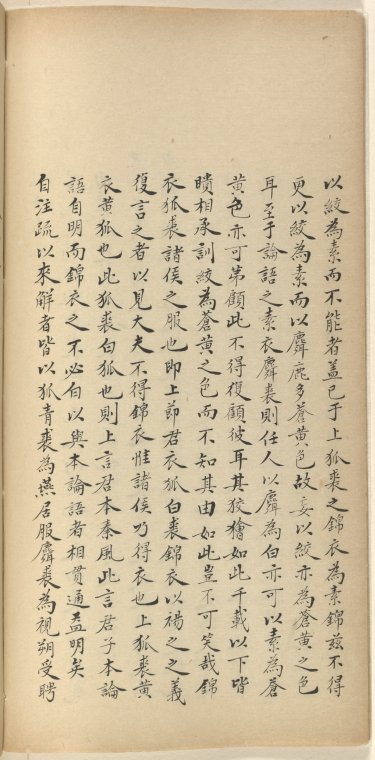 以絞為素而不能者蓋已于上狐裘之錦衣為素錦茲不得
更以絞為素而以麛鹿多蒼黃色故妄以絞亦為蒼黃之色
耳至于論語之素衣麛裘則任人以麛為白亦可以素為蒼
黃色亦可弟顧此不得復顧彼耳其狡獪如此千載以下皆
瞶相承訓絞為蒼黃之色而不知其由如此豈不可笑哉錦
衣狐裘諸侯之服也即上節君衣狐白裘錦衣以裼之之義
復言之者以見大夫不得錦衣惟諸侯乃得衣也上狐裘黃
衣黃狐也此狐裘白狐也則上言君本秦風此言君子本論
語自明而錦衣之不必白以與本論語者相貫通益明矣
自注疏以來解者皆以狐青裘為燕居服麛裘為視朔受聘